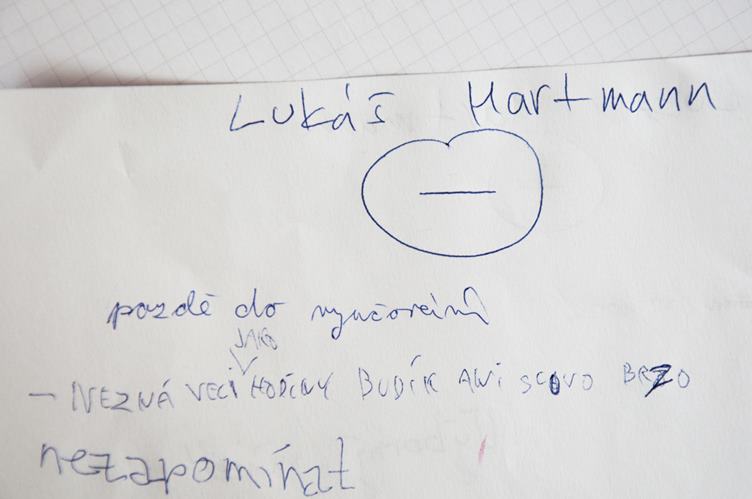 Lukáš Hartmann
—
pozdě do vyučování
JAKO
- NEZNÁ VECI HODINY BUDÍK ANI SLOVO BRZO
nezapomínat